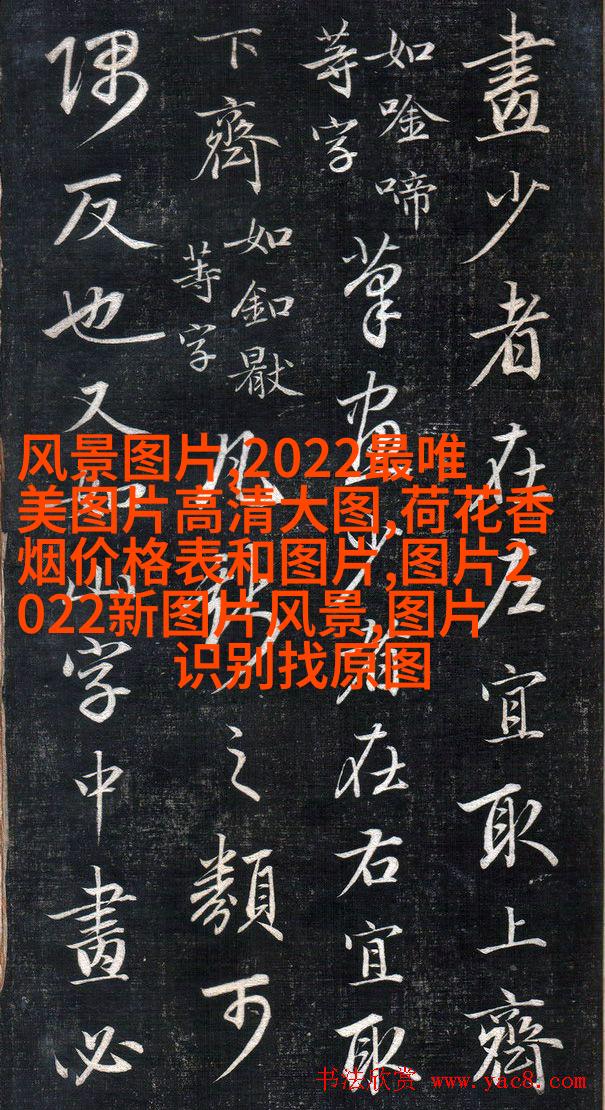 畫少者在左宜取上齊
如唫啼
等字
筆畫少者在右宜取
下齊
如釦
等字
凡之類可
隅反也又如山字中畫必
风景图片,2022最唯
美图片高清大图,荷花香
烟价格表和图片,图片2
022新图片风景,图片
识别找原图
书法欣赏 www.yac8.com